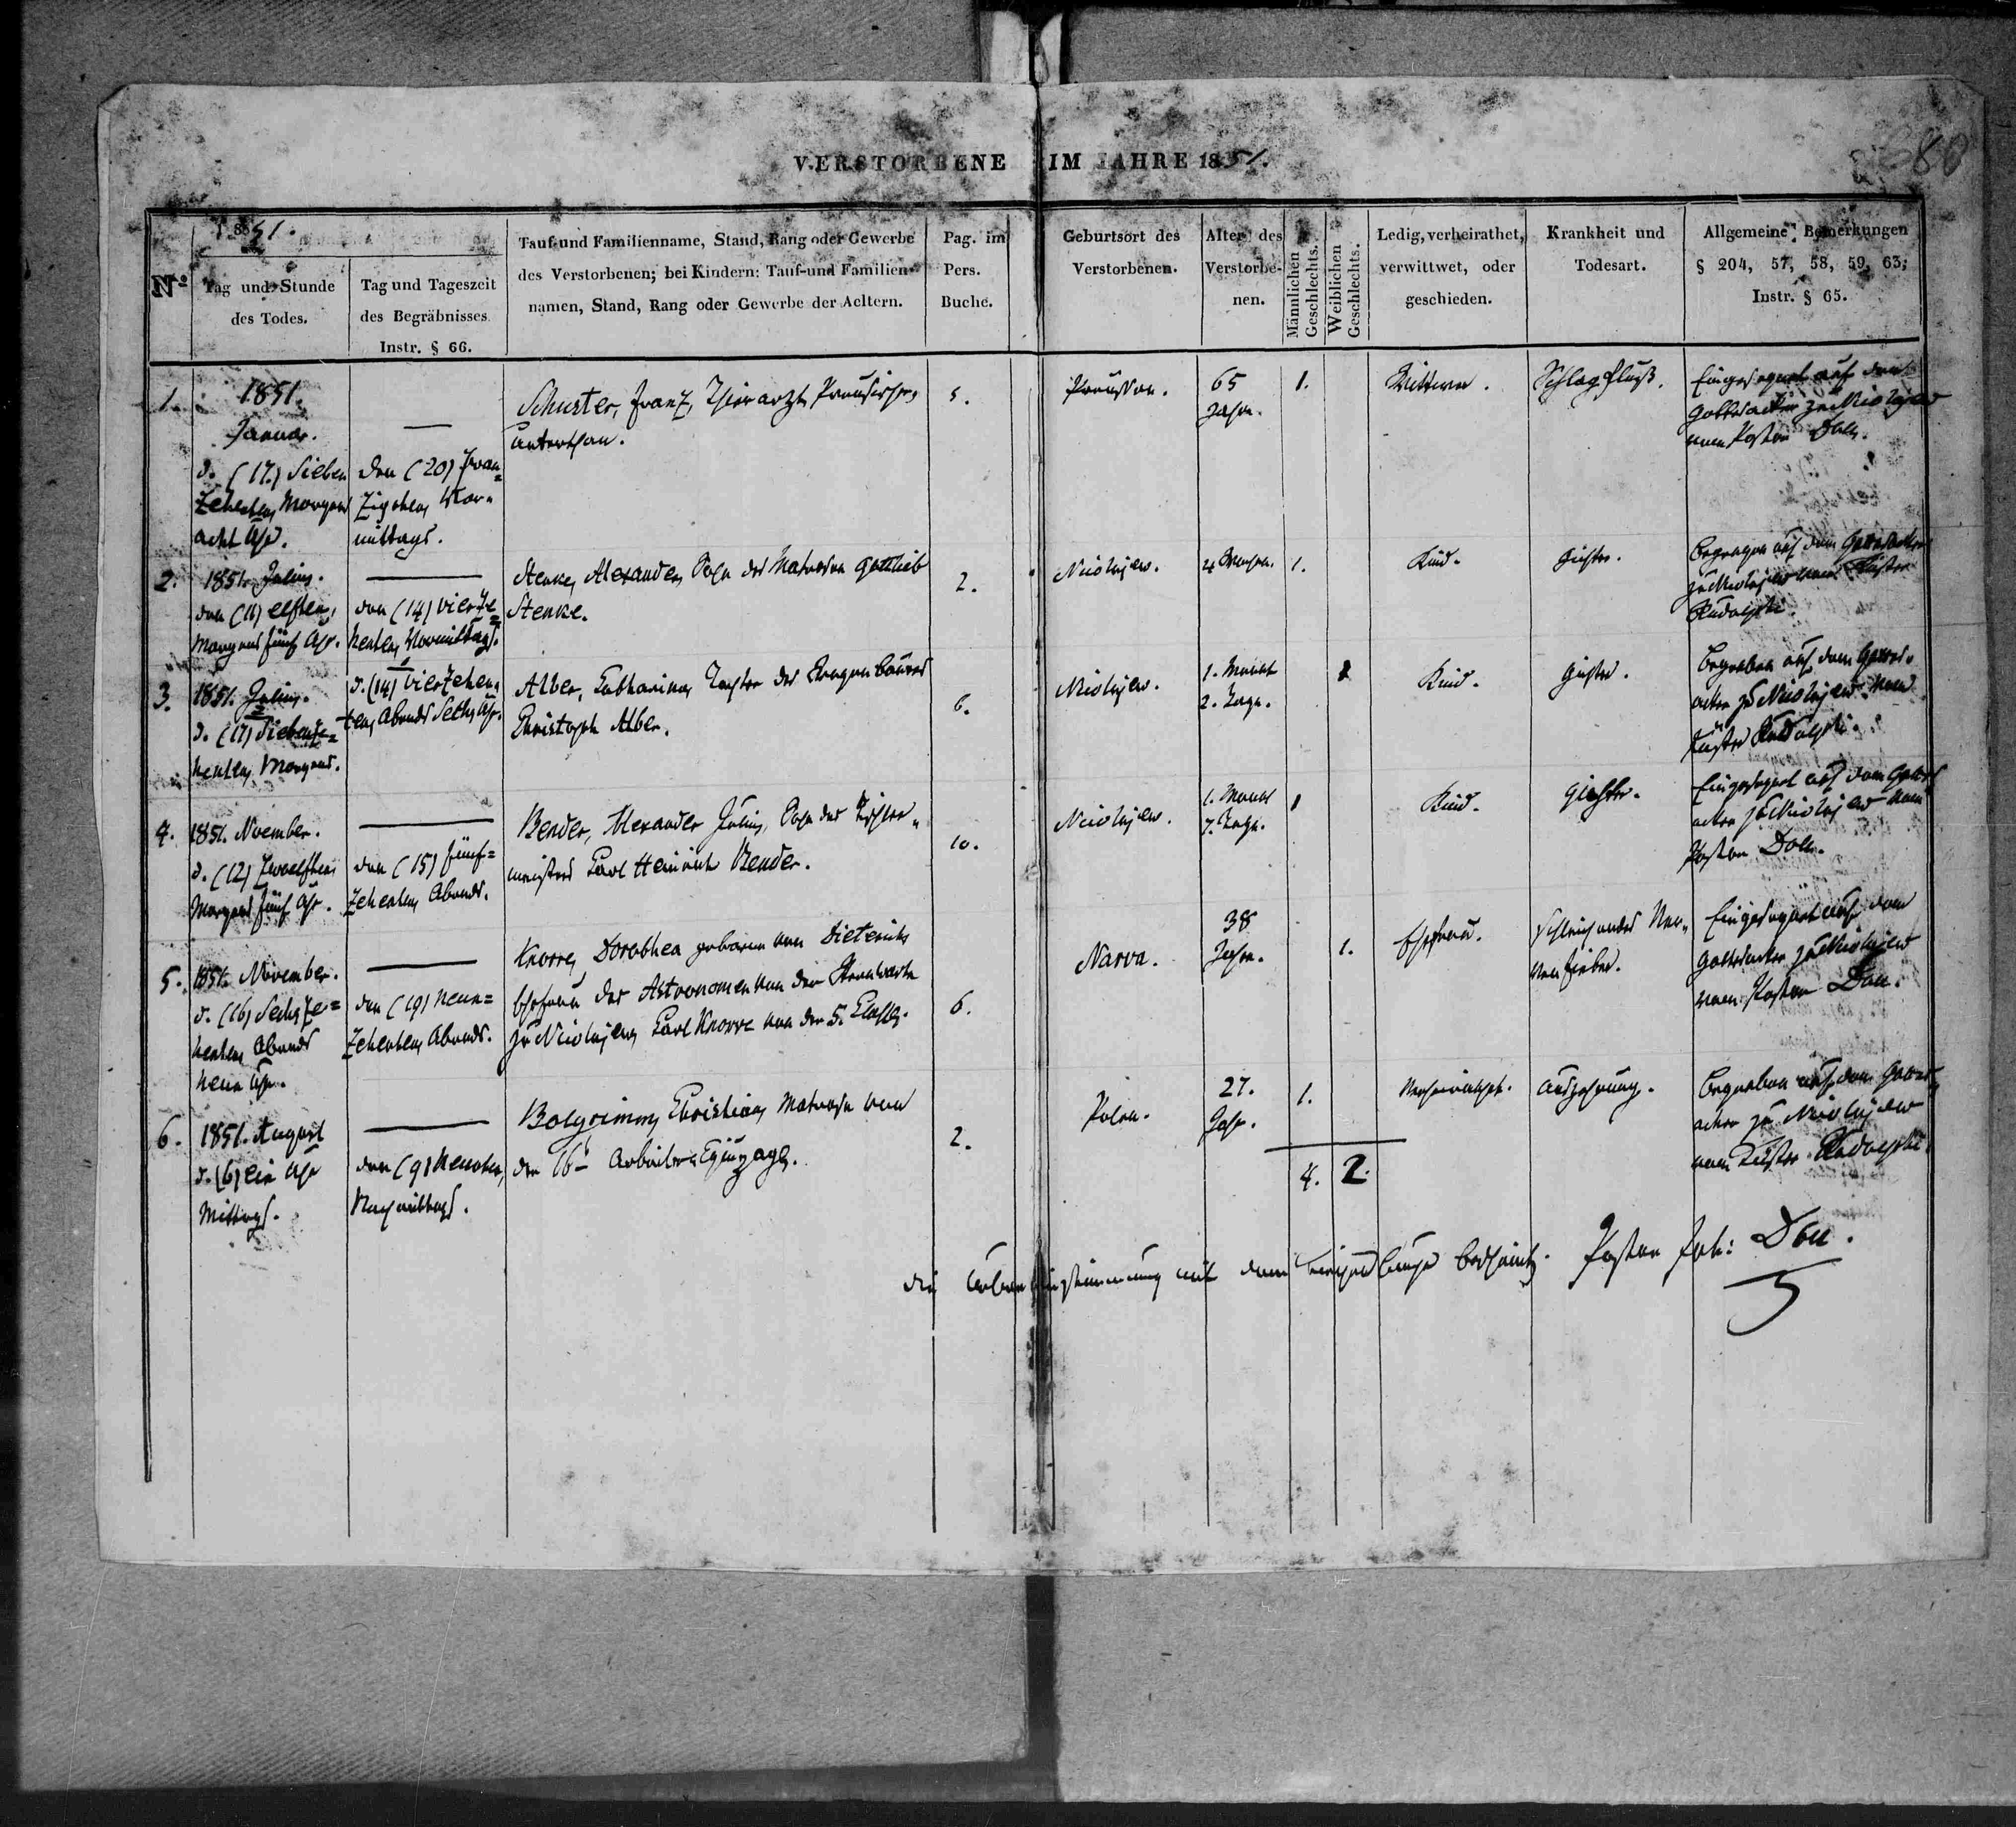 VERSTORBENE IM JAHRE 1851.
380
1851.
Nº
Tag und Stunde
des Todes.
Tag und Tageszeit
des Begräbnisses
Instr. § 66.
Tauf-und Familienname, Stand, Rang oder Gewerbe
des Verstorbenen; bei Kindern: Tauf-und Familien-
namen, Stand, Rang oder Gewerbe der Aeltern.
Pag. im
Pers.
Buche.
Geburtsort des
Verstorbenen.
Alter des
Verstorbe-
nen.
Männlichen
Geschlechts.
Weiblichen
Geschlechts.
Ledig, verheirathet,
verwittwet, oder
geschieden.
Krankheit und
Todesart.
Allgemeine Bemerkungen
§ 204, 57, 58, 59, 63;
Instr. § 65.
1.
1851.
Januar.
d. (17.) Sieben
zehenten Morgens
acht Uhr.
den (20) zwan
zigsten Vor-
mittags.
Schuster, Franz, Thierarzt, Preusischer
Unterthan.
5.
Preussen.
65
Jahre.
1.
Wittwer.
Schlagfluß.
Eingesegnet auf dem
Gottesacker zu Nicolajew
vom Pastor Doll.
2.
1851. Julius.
den (11) elften,
Morgens fünf Uhr.
den (14) vierze=
henten Vormittags.
Stenke, Alexander, Sohn des Matrosen Gottlieb
Stenke.
2.
Nicolajew.
1.
Kind.
Gichter.
Begraben auf dem Gottesacker
zu Nicolajew vom Küster
Rudolphi.
3.
1851. Julius.
d. (17) Siebenze=
henten Morgens.
d. (14) vierzehen
ten, Abends Sechs Uhr.
Alber, Catharina, Tochter des
Christoph Alber.
6.
Nicolajew.
1. Monat
2. Tage.
1
Kind.
Gichter.
Begraben auf dem Gottes-
acker zu Nicolajew vom
Küster Rudolphi.
4.
1851. November.
d. (12) Zwoelften
Morgens fünf Uhr.
den (15) fünf=
zehenten Abends.
Bender, Alexander Julius, Sohn des Tischler-
meisters Carl Heinrich Bender.
10.
Nicolajew.
1. Monat
7. Tage.
1
Kind.
Gichter.
Eingesegnet auf dem Gottes
acker zu Nicolajew vom
Pastor Doll.
5.
1851. November.
d. (16) Sechsze=
henten Abends
neun Uhr.
den (19) neun=
zehenten Abends.
Knorre, Dorothea geborene von Dieterichs
Ehefrau des Astronomen von der Sternwarte
zu Nicolajew, Carl Knorre von der 5. Classe.
6.
Narva.
38
Jahre.
1.
Ehefrau.
Schleichendes Ner-
venfieber.
Eingesegnet auf dem
Gottesacker zu Nicolajew
vom Pastor Doll.
6.
1851. August
d. (6) ein Uhr
Mittags.
den (9) neunten,
Nachmittags.
Christian, Matrose von
der 16 Arbeiter Equipage.
2.
Polen.
27.
Jahr.
1.
Verheirathet.
Auszehrung.
Begraben auf dem Gottes
acker zu Nicolajew
vom Küster Rudolphi.
4. 2.
Die Uebereinstimmung mit dem Kirchenbuche bescheinigt. Pastor Joh: Doll.